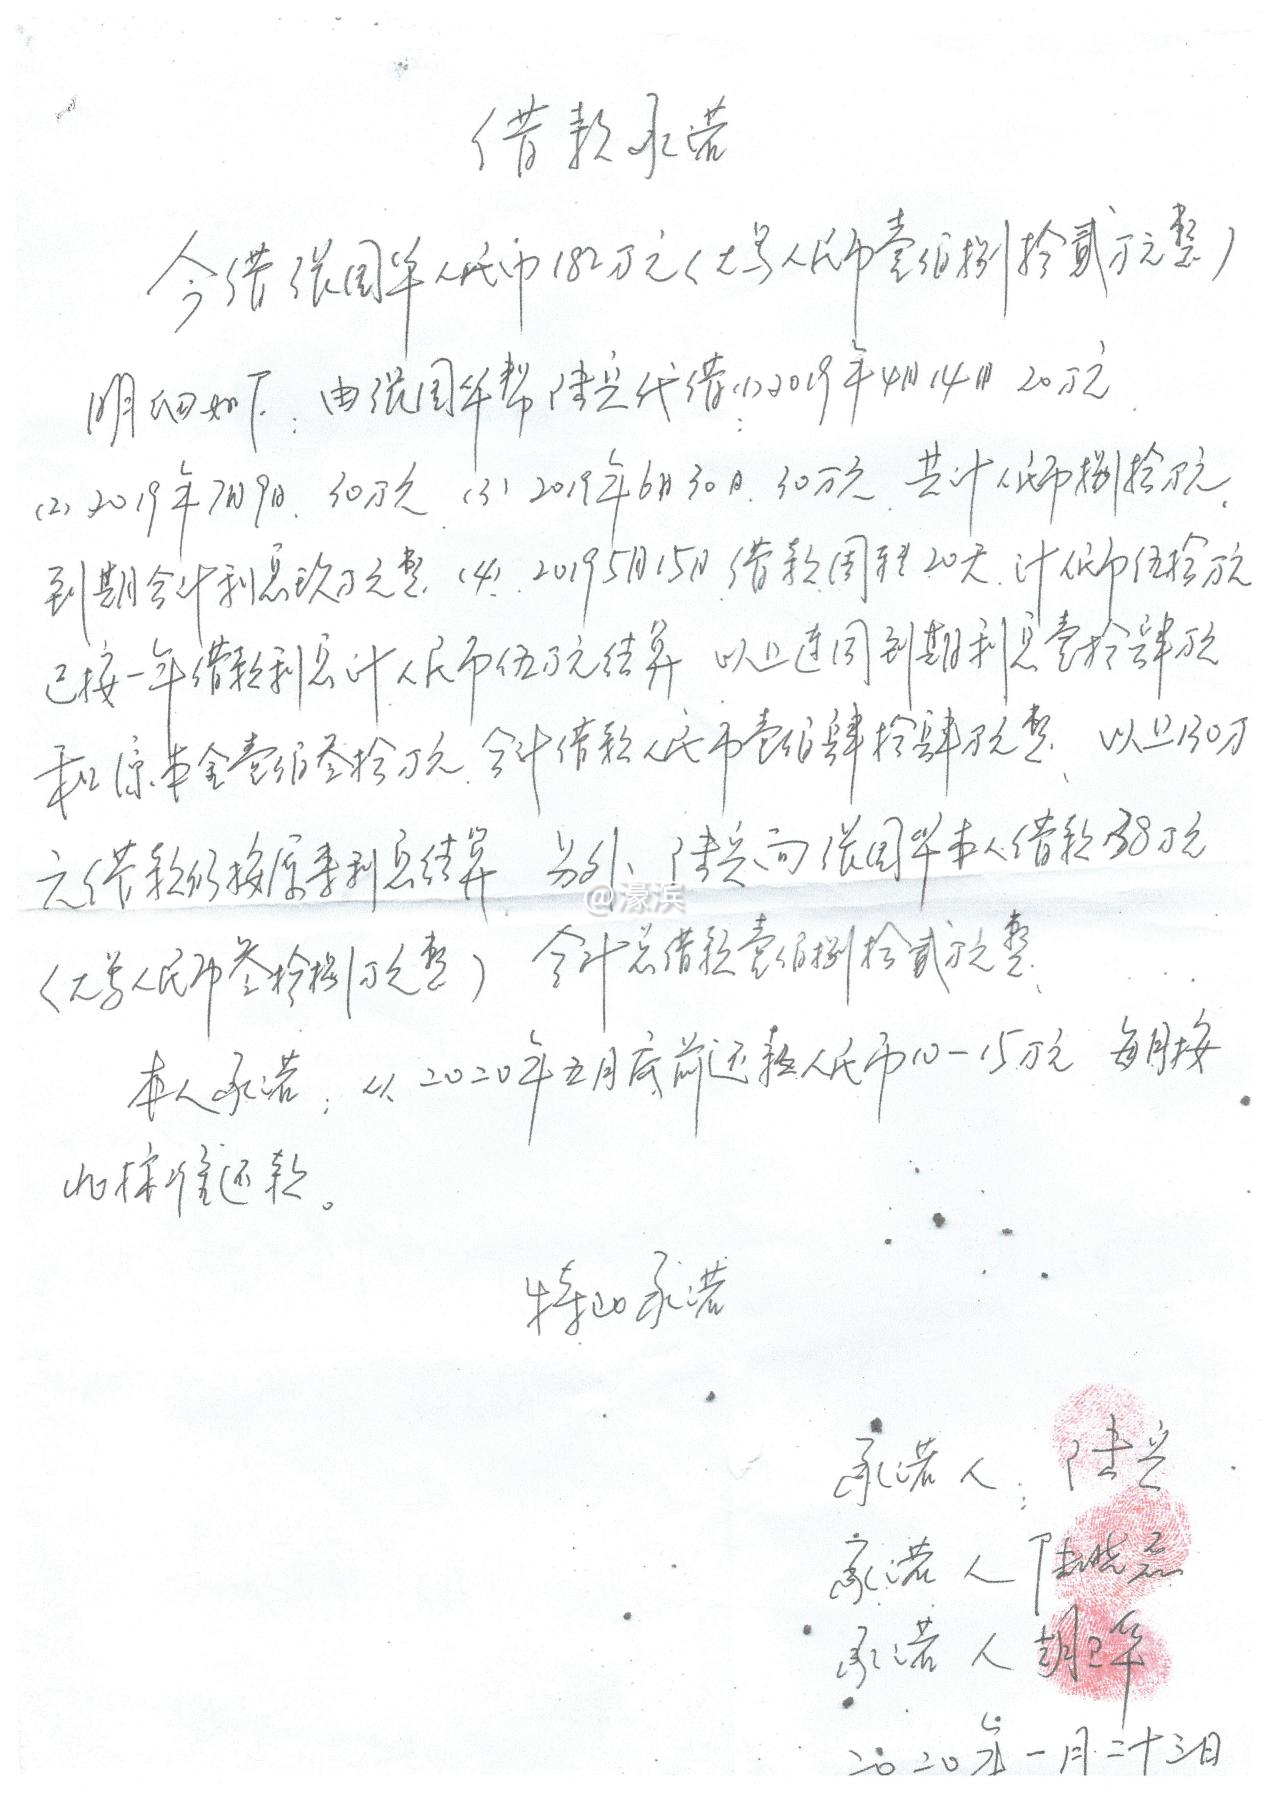 借款承诺
今借张国华人民币182万元(大写人民币壹佰捌拾贰万元整)
明细如下: 由张国华帮陆兵代借:(1)2019年4月14日 20万元.
(2) 2019年7月9日. 30万元 (3) 2019年6月30日. 30万元 共计人民币捌拾万元.
到期合计利息玖万元整. (4). 2019 5月15日 借款周转20天. 计人民币伍拾万元
已按一年借款利息计人民币伍万元结算 以上连同到期利息壹拾肆万元
和原本金壹佰叁拾万元. 合计借款人民币壹佰肆拾肆万元整. 以上130万
元借款仍按原季利息结算 另外、陆兵向张国华本人借款38万元
@濠滨
(大写人民币叁拾捌万元整) 合计总借款壹佰捌拾贰万元整.
本人承诺: 从2020年五月底前还款人民币10-15万元 每月按
此标准还款。
特此承诺
承诺人: 陆兵
承诺人 陆晓磊
承诺人 胡卫华
二〇二〇年一月二十三日